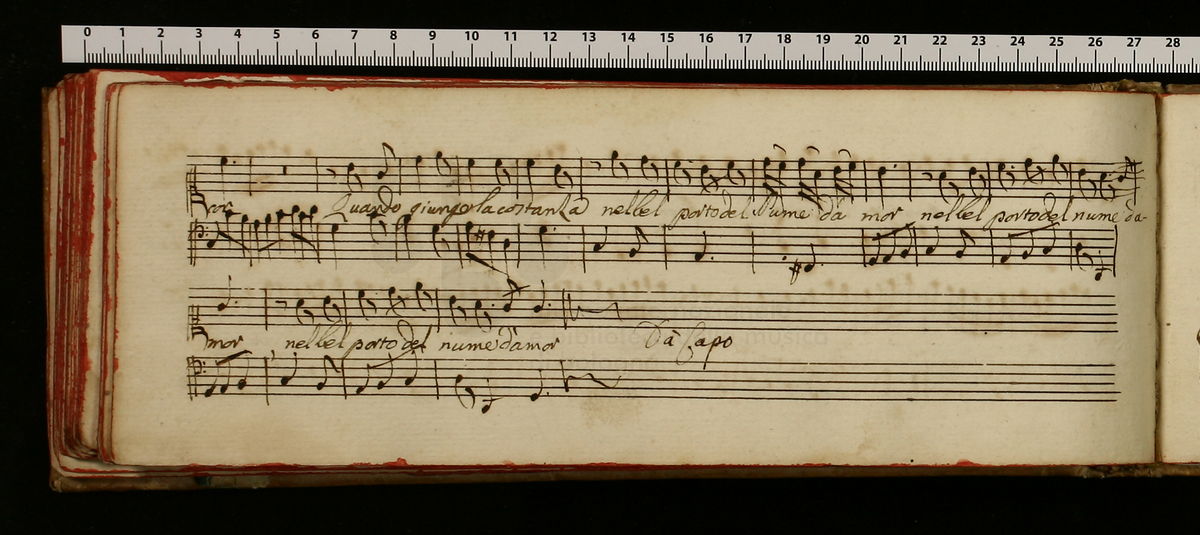 0 1 2 3 4 5 6 7 8 9 10 11 12 13 14 15 16 17 18 19 20 21 22 23 24 25 26 27 28
ror Quando giunger la costanza nel bel porto del Nume dà mor nel bel porto del nume da-
mor nel bel porto del nume dàmor Dà Capo